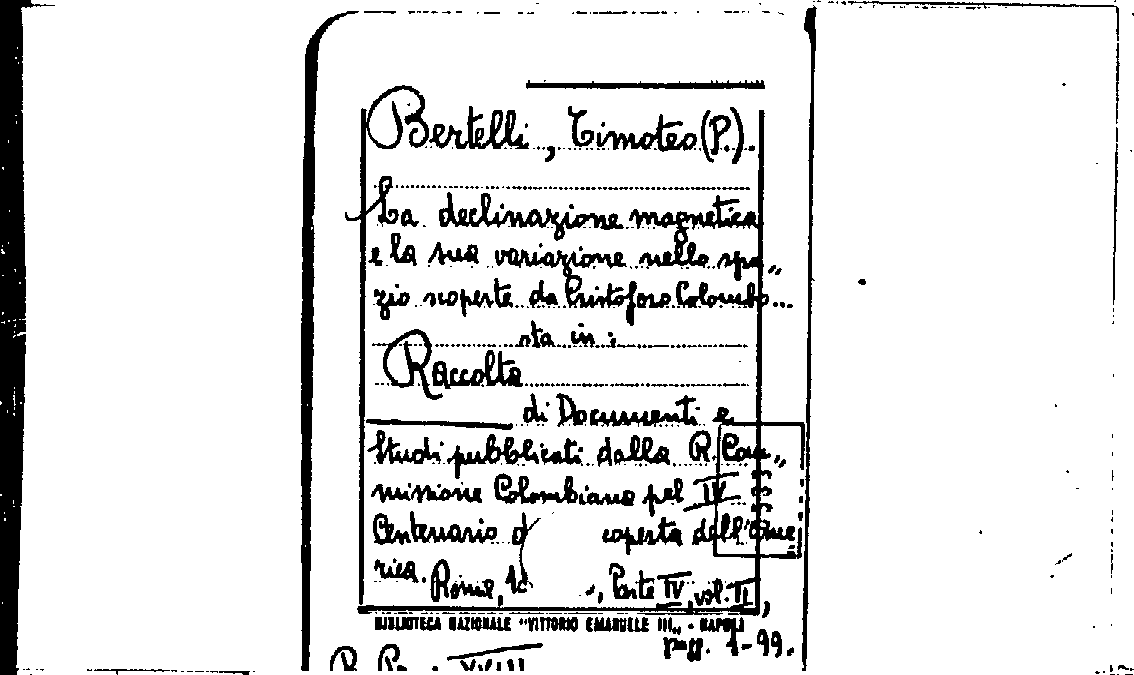 Bertelli, Timoteo (P.).
La declinazione magnetica
e la sua variazione nello spa„
zio scoperte da Cristoforo Colombo...
sta in:
Raccolta
di Documenti e
Studi pubblicati dalla R. Com„
missione Colombiana pel IV
Centenario d coperta dell'Ame
rica. Roma, , Parte IV, vol. II,
BIBLIOTECA NAZIONALE "VITTORIO EMANUELE III„ - NAPOLI
pagg. 1-99.
XVIII